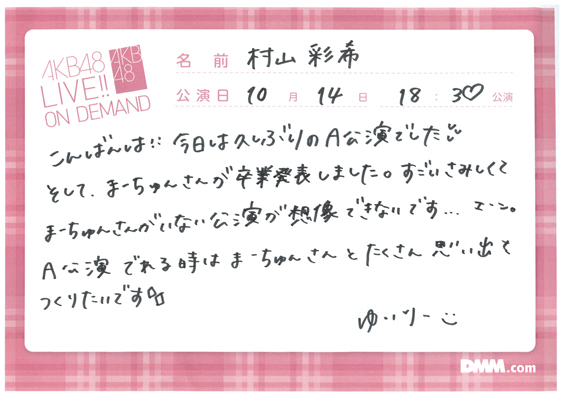 AKB48
LIVE!!
ON DEMAND
AKB
48
名 前 村山 彩希
公演日 10 月 14 日 18 : 30♡ 公演
こんばんは!! 今日は久しぶりのA公演でした
そして、まーちゅんさんが卒業発表しました。すごいさみしくて
まーちゅんさんがいない公演が想像できないです… えーん。
A公演 でれる時は まーちゅんさん と たくさん 思い出を
つくりたいです
ゆいりー
DMM.com